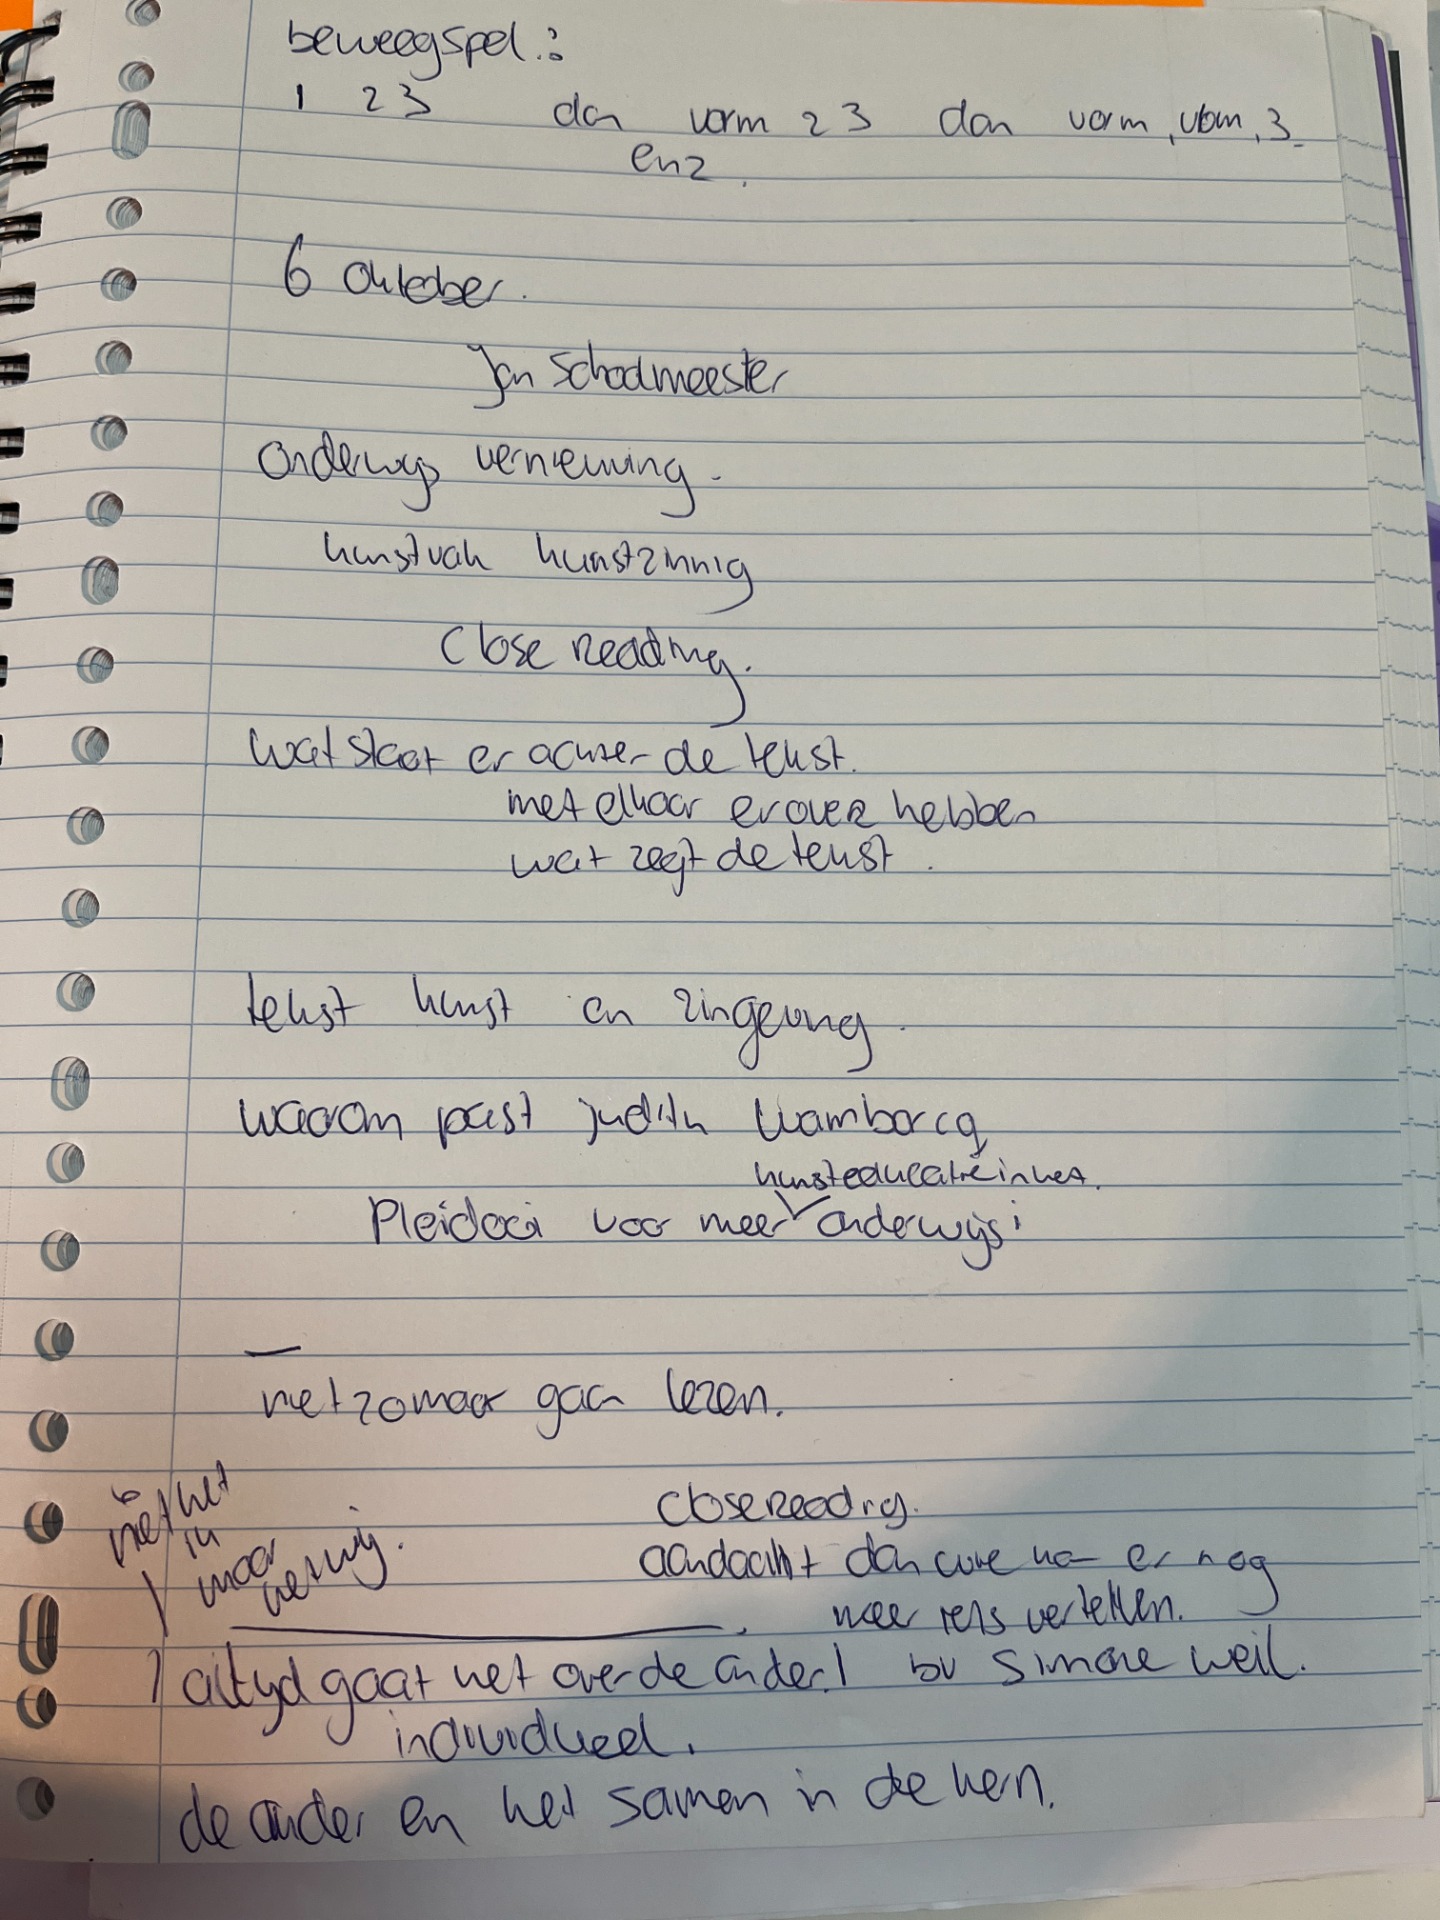 beweegspel:
1 2 3 dan vorm 2 3 dan vorm, vorm, 3.
enz.
6 Oktober.
Jan Schoolmeester
Onderwijs vernieuwing.
kunstvak kunstzinnig
Close Reading.
wat staat er achter de tekst.
met elkaar erover hebben
wat zegt de tekst.
tekst kunst en zingeving.
waarom past judith Wambacq
kunsteducatie in het.
Pleidooi voor meer onderwijs:
—
niet zomaar gaan lezen.
niet het
in
maar
het wij.
Close Reading.
aandacht dan er nog
meer vertellen.
altijd gaat het over de ander! bv Simone Weil.
individueel.
de ander en het samen in de kern.